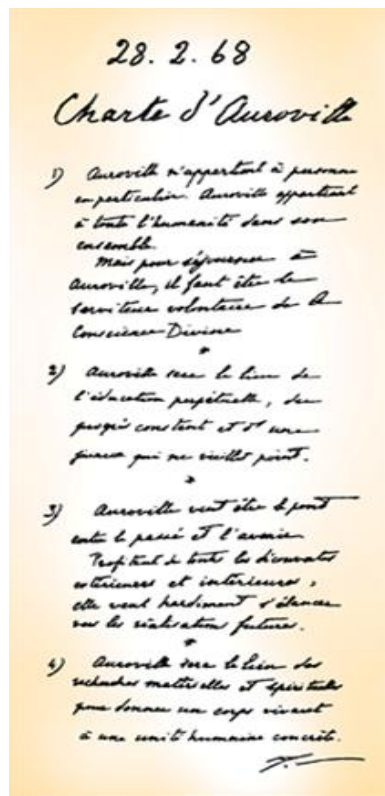 28. 2. 68
Charte d'Auroville
1) Auroville n'appartient à personne
en particulier. Auroville appartient
à toute l'humanité dans son
ensemble.
Mais pour séjourner à
Auroville, il faut être le
serviteur volontaire de la
Conscience Divine
*
2) Auroville sera le lieu de
l'éducation perpétuelle, du
progrès constant et d'une
jeunesse qui ne vieillit point.
*
3) Auroville veut être le pont
entre le passé et l'avenir
Profitant de toutes les découvertes
extérieures et intérieures,
elle veut hardiment s'élancer
vers les réalisations futures.
*
4) Auroville sera le lieu des
recherches matérielles et spirituelles
pour donner un corps vivant
à une unité humaine concrète.